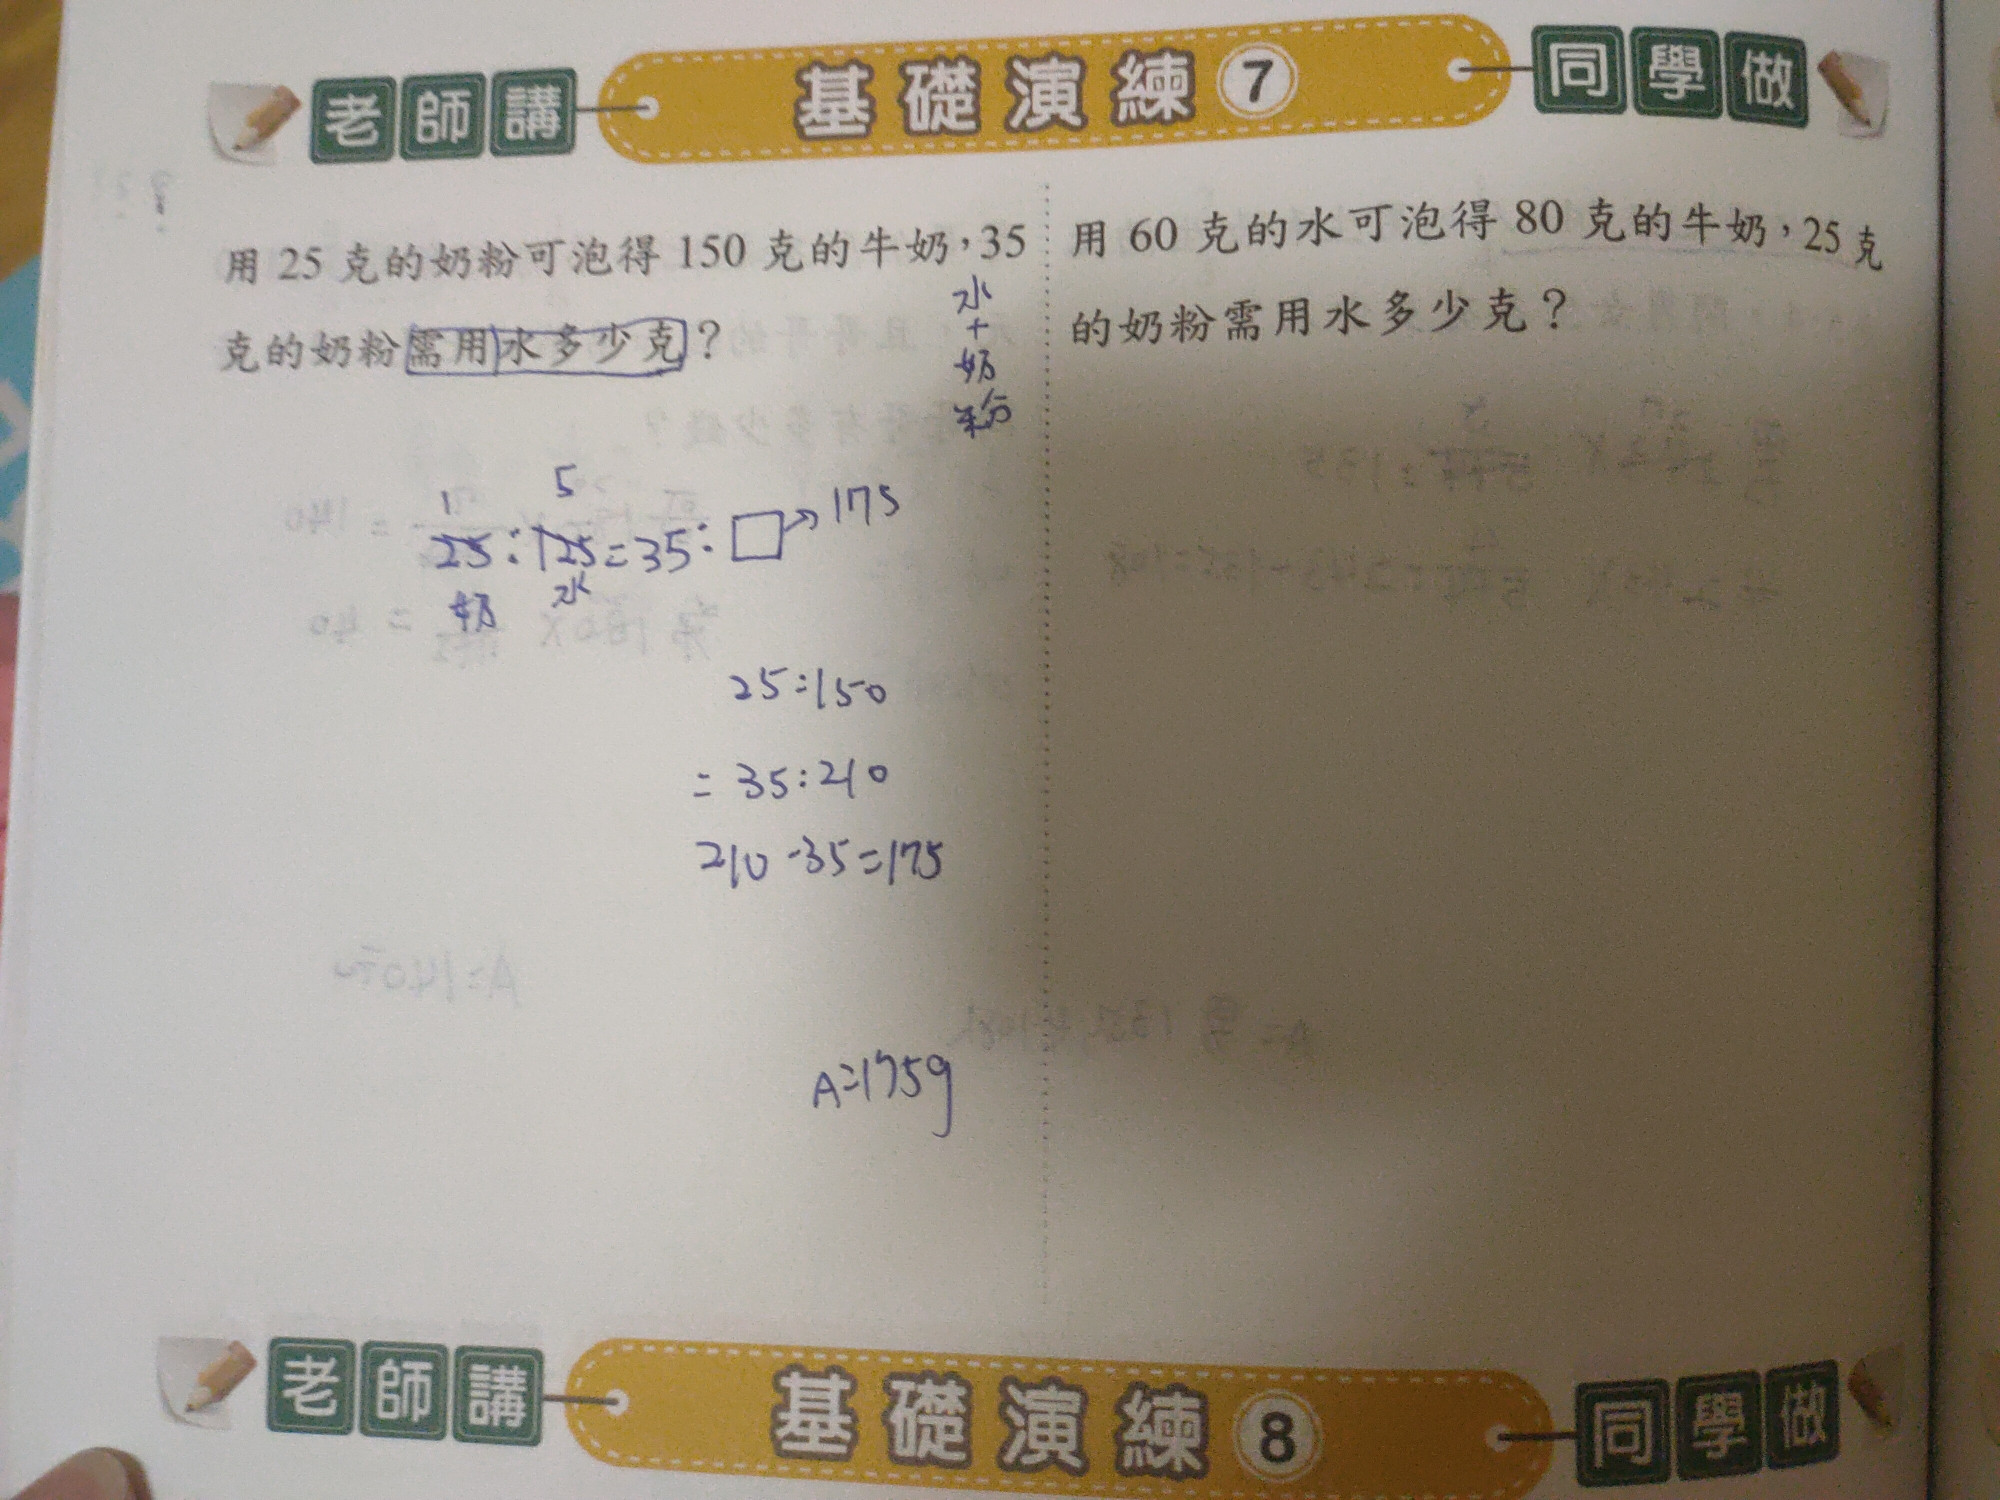 老師講 基礎演練 7 同學做
用 25 克的奶粉可泡得 150 克的牛奶，35
克的奶粉需用水多少克？
水
+
奶
粉
1 5
25:125=35:□→175
奶 水
25:150
=35:210
210-35=175
A=175g
用 60 克的水可泡得 80 克的牛奶，25 克
的奶粉需用水多少克？
老師講 基礎演練 8 同學做